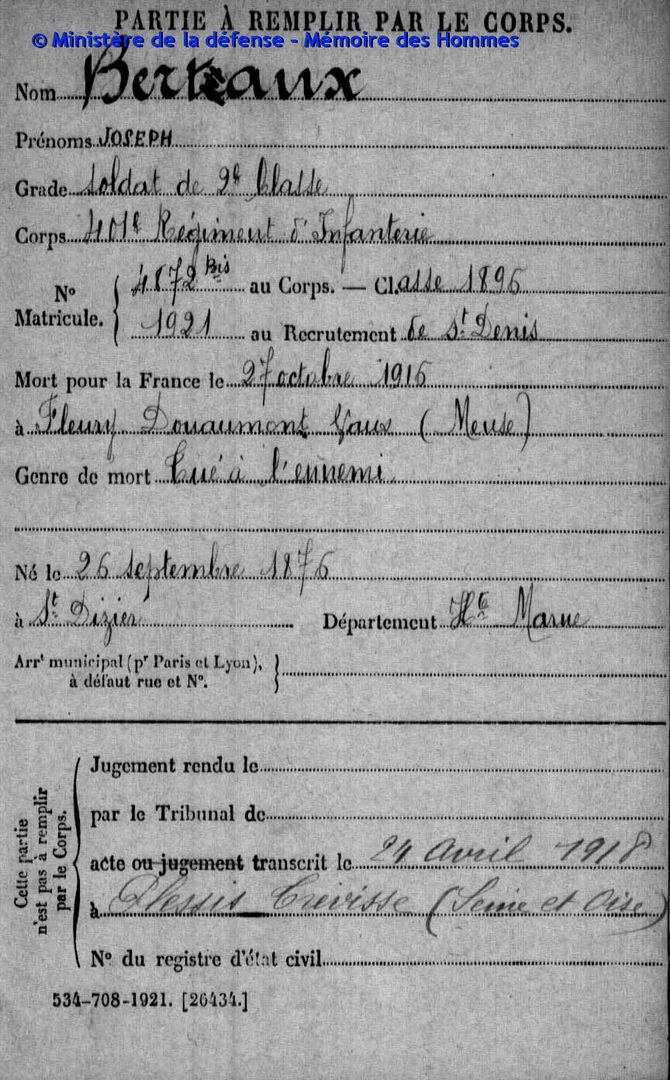 PARTIE À REMPLIR PAR LE CORPS.
© Ministère de la défense - Mémoire des Hommes
Nom Berteaux
Prénoms JOSEPH
Grade Soldat de 2e Classe
Corps 401e Régiment d'Infanterie
No Matricule. 4872 Bis au Corps. — Cl.asse 1896
1921 au Recrutement de St Denis
Mort pour la France le 27 octobre 1916
à Fleury Douaumont Vaux (Meuse)
Genre de mort Tué à l'ennemi
Né le 26 septembre 1876
à St Dizier Département Hte Marne
Arrt municipal (pr Paris et Lyon),
à défaut rue et No.
Cette partie n'est pas à remplir par le Corps.
Jugement rendu le
par le Tribunal de
acte ou jugement transcrit le 24 Avril 1918
à Plessis (Seine et Oise)
No du registre d'état civil
534-708-1921. [26434.]